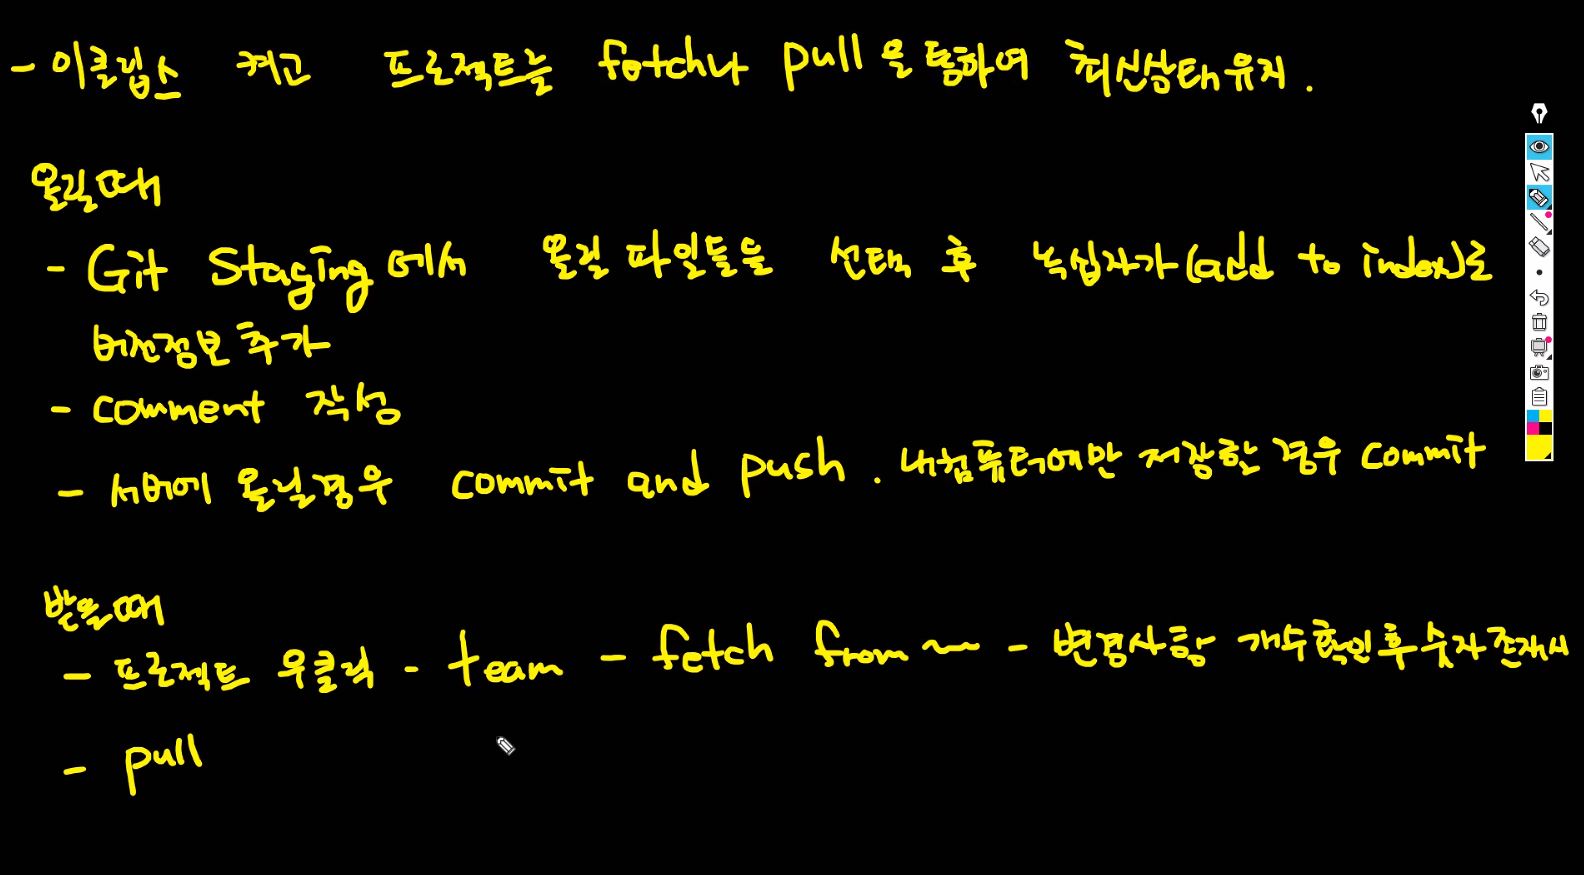 - 이클립스 켜고 프로젝트는 fetch나 pull을 통하여 최신상태유지.
올릴때
- Git Staging에서 올릴 파일들을 선택 후 녹십자가(add to index)로
버전정보 추가
- comment 작성
- 서버에 올릴경우 commit and push. 내컴퓨터에만 저장할 경우 commit
받을때
- 프로젝트 우클릭 - team - fetch from ~ - 변경사항 개수확인후 숫자존재시
- pull